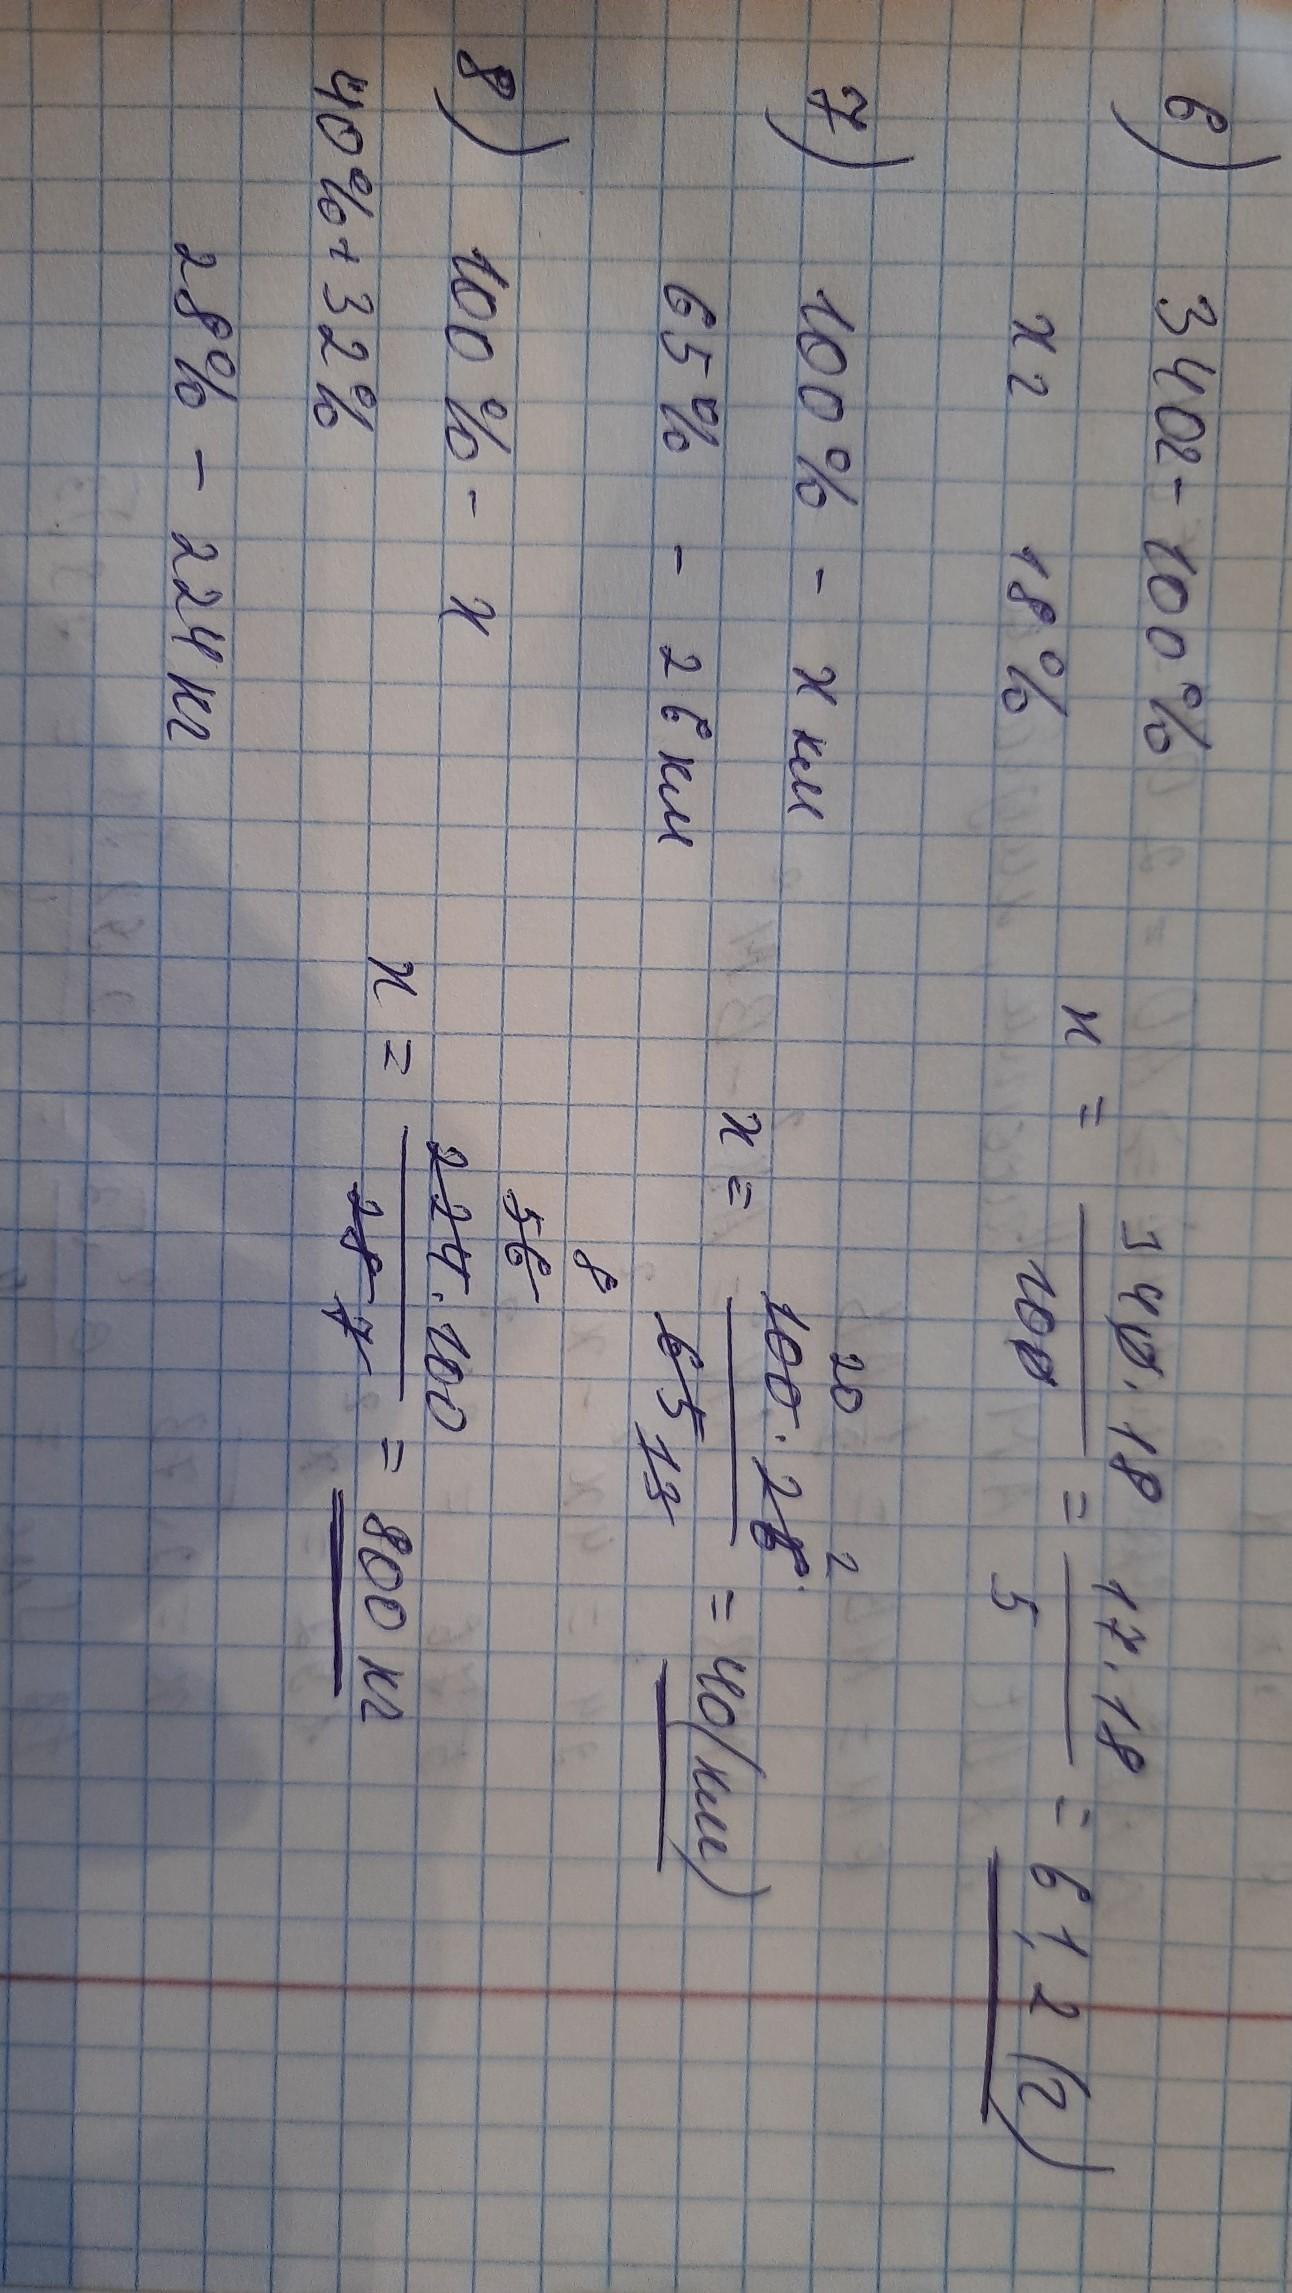 6) 340г - 100%
х г 18%
х = 340·18 / 100 = 17·18 / 5 = 61,2 (г)
7) 100% - х км
65% - 26 км
20 2
х = 100·26 / 65 13 = 40 (км)
8) 100% - х
40% + 32%
28% - 224 кг
8
56
х = 224·100 / 28 7 = 800 кг